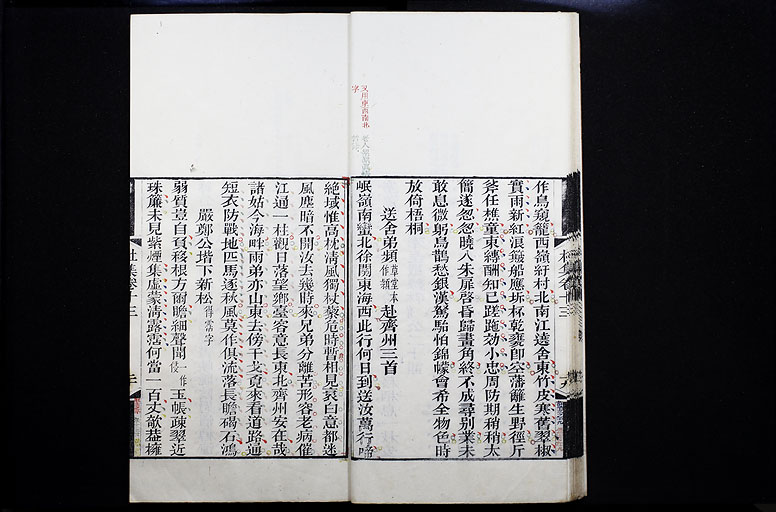 又用東西南北
字
作鳥窺籠西嶺紆村北南江遶舍東竹皮寒舊翠椒
實雨新紅浪簸船應坼杯乾甕即空藩籬生野徑斤
斧任樵童束縛酬知已蹉跎効小忠周防期稍稍太
簡遂怱怱曉入朱扉啓昏歸畫角終不成尋別業未
敢息微躬烏鵲愁銀漢駑駘怕錦幪會希全物色時
放倚梧桐
送舍弟頻草堂本作穎赴齊州三首
岷嶺南蠻北徐關東海西此行何日到送汝萬行啼
絕域惟高枕清風獨杖藜危時暫相見衰白意都迷
風塵暗不開汝去幾時來兄弟分離苦形容老病催
江通一柱觀日落望鄉臺客意長東北齊州安在哉
諸姑今海畔兩弟亦山東去傍干戈覓來看道路通
短衣防戰地匹馬逐秋風莫作俱流落長瞻碣石鴻
嚴鄭公堦下新松得霑字
弱質豈自負移根方爾瞻細聲聞一作侵玉帳疎翠近
珠簾未見紫煙集虛蒙清露霑何當一百丈欹葢擁
杜集卷十三